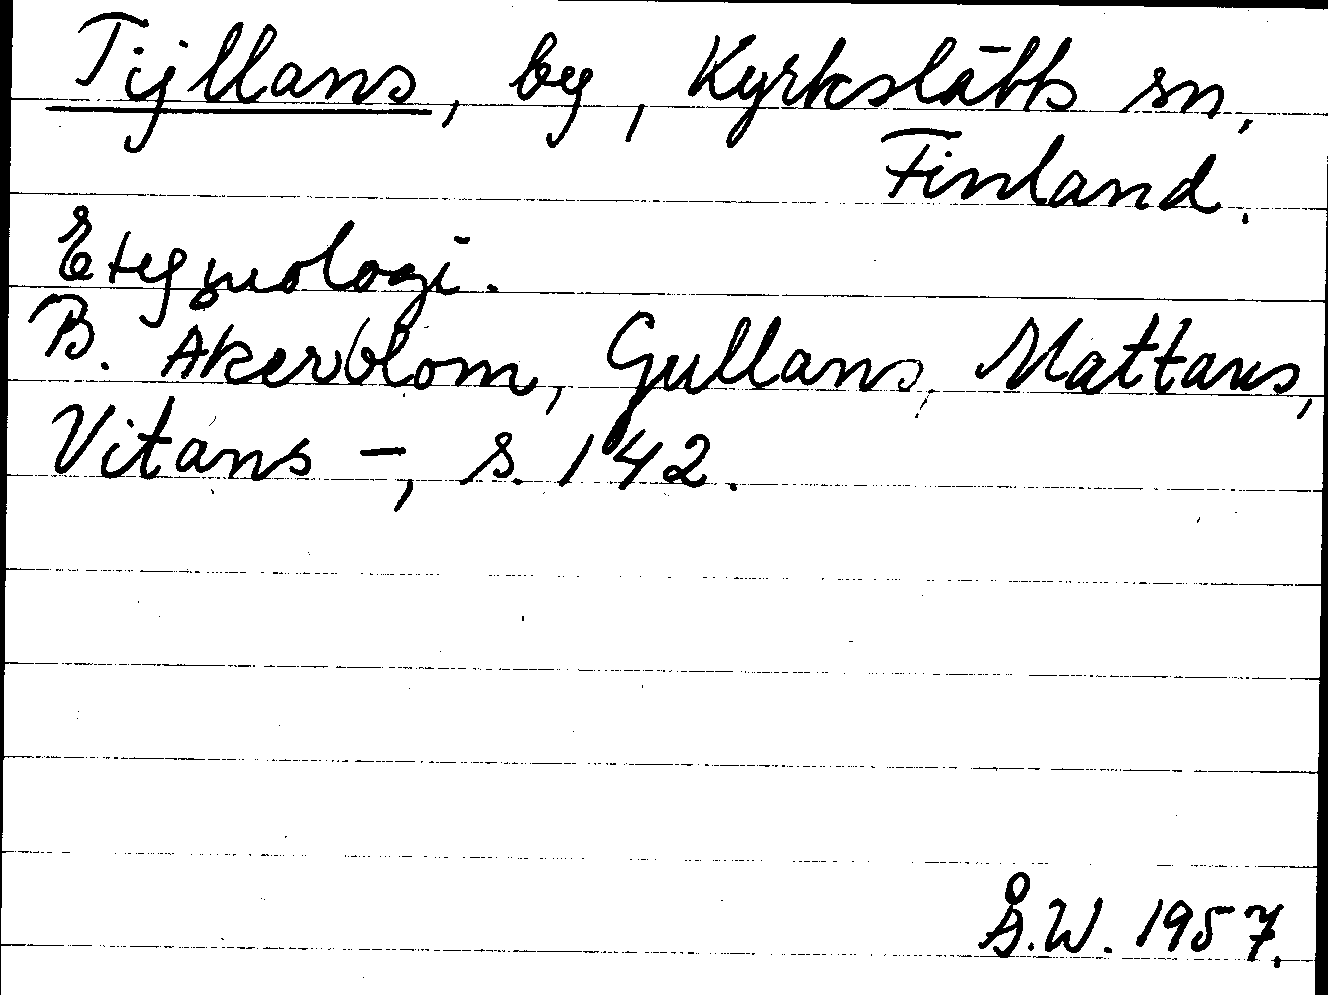 Tijllans, by, Kyrkslätts sn,
Finland.
Etymologi.
B. Åkerblom, Gullans, Mattans,
Vitans –, s. 142.
Å.W. 1957.